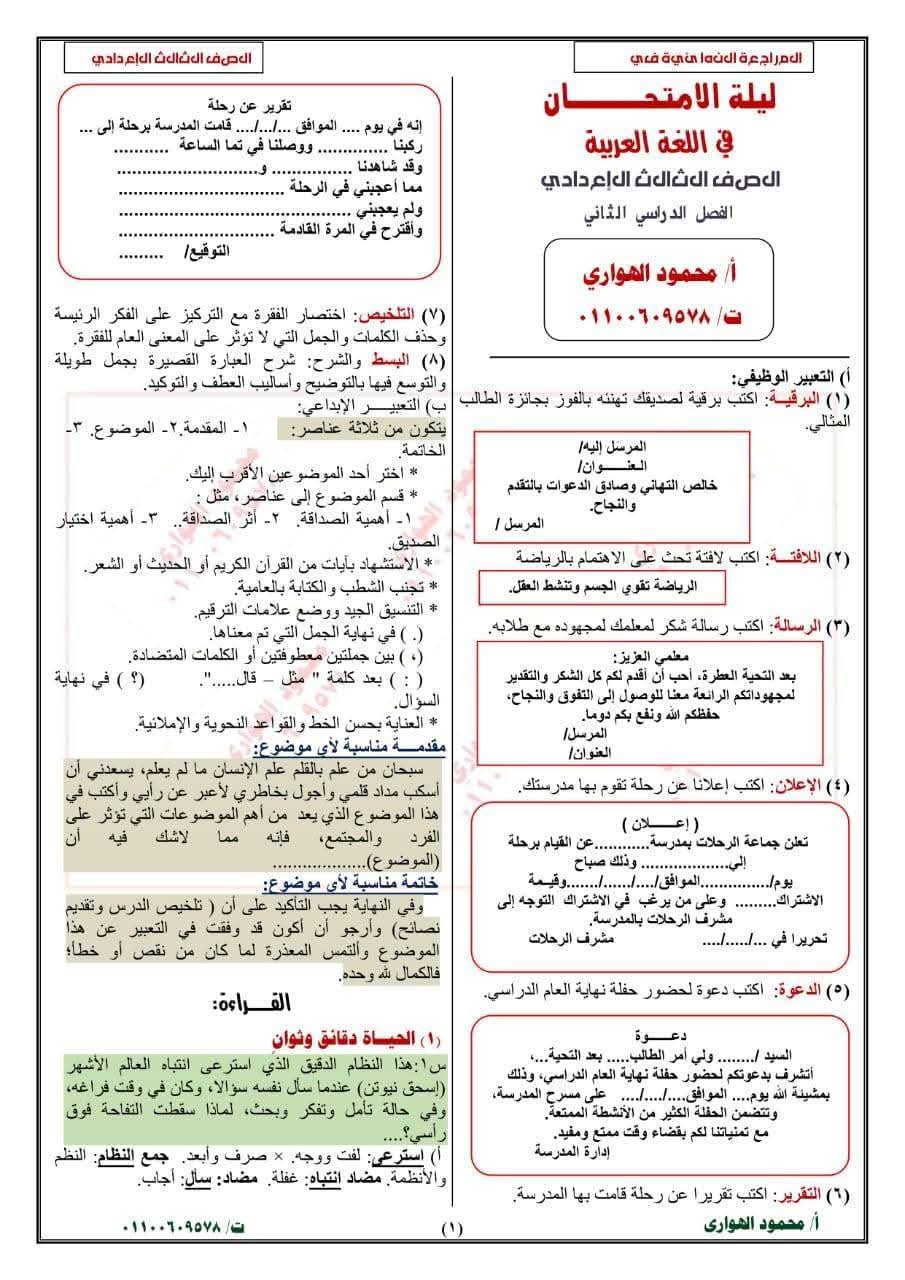 المراجعة النهائية في
الصف الثالث الإعدادي
ليلة الامتحـــــــان
في اللغة العربية
الصف الثالث الإعدادي
الفصل الدراسي الثاني
أ/ محمود الهواري
ت/ ٠١١٠٠٦٠٩٥٧٨
أ) التعبير الوظيفي:
(١) البرقيــة: اكتب برقية لصديقك تهنئه بالفوز بجائزة الطالب
المثالي.
المرسل إليه/
العنـــوان/
خالص التهاني وصادق الدعوات بالتقدم
والنجاح.
المرسل /
(٢) اللافتــة: اكتب لافتة تحث على الاهتمام بالرياضة
الرياضة تقوي الجسم وتنشط العقل.
(٣) الرسالة: اكتب رسالة شكر لمعلمك لمجهوده مع طلابه.
معلمي العزيز:
بعد التحية العطرة، أحب أن أقدم لكم كل الشكر والتقدير
لمجهوداتكم الرائعة معنا للوصول إلى التفوق والنجاح،
حفظكم الله ونفع بكم دوما.
المرسل/
العنوان/
(٤) الإعلان: اكتب إعلانا عن رحلة تقوم بها مدرستك.
( إعـــــلان )
تعلن جماعة الرحلات بمدرسة............عن القيام برحلة
إلي................... وذلك صباح
يوم/...............الموافق/..../...../.......وقيـمة
الاشتراك......... وعلى من يرغب في الاشتراك التوجه إلى
مشرف الرحلات بالمدرسة.
تحريرا في .../...../.... مشرف الرحلات
(٥) الدعوة: اكتب دعوة لحضور حفلة نهاية العام الدراسي.
دعـــوة
السيد /........ ولي أمر الطالب..... بعد التحية...،
أتشرف بدعوتكم لحضور حفلة نهاية العام الدراسي، وذلك
بمشيئة الله يوم.... الموافق..../..../.... على مسرح المدرسة،
وتتضمن الحفلة الكثير من الأنشطة الممتعة.
مع تمنياتنا لكم بقضاء وقت ممتع ومفيد.
إدارة المدرسة
(٦) التقرير: اكتب تقريرا عن رحلة قامت بها المدرسة.
تقرير عن رحلة
إنه في يوم .... الموافق .../.../.... قامت المدرسة برحلة إلى ...
ركبنا .............. ووصلنا في تما الساعة ...........
وقد شاهدنا .................. و.........................
مما أعجبني في الرحلة .................................
ولم يعجبني ..............................................
وأقترح في المرة القادمة ...............................
التوقيع/ .........
(٧) التلخيص: اختصار الفقرة مع التركيز على الفكر الرئيسة
وحذف الكلمات والجمل التي لا تؤثر على المعنى العام للفقرة.
(٨) البسط والشرح: شرح العبارة القصيرة بجمل طويلة
والتوسع فيها بالتوضيح وأساليب العطف والتوكيد.
ب) التعبيـــر الإبداعي:
يتكون من ثلاثة عناصر: ١- المقدمة.٢- الموضوع. ٣-
الخاتمة.
* اختر أحد الموضوعين الأقرب إليك.
* قسم الموضوع إلى عناصر، مثل :
١- أهمية الصداقة. ٢- أثر الصداقة.. ٣- أهمية اختيار
الصديق.
* الاستشهاد بآيات من القرآن الكريم أو الحديث أو الشعر.
* تجنب الشطب والكتابة بالعامية.
* التنسيق الجيد ووضع علامات الترقيم.
(. ) في نهاية الجمل التي تم معناها.
(، ) بين جملتين معطوفتين أو الكلمات المتضادة.
( : ) بعد كلمة " مثل – قال.....". (؟ ) في نهاية
السؤال.
* العناية بحسن الخط والقواعد النحوية والإملائية.
مقدمـــة مناسبة لأي موضوع:
سبحان من علم بالقلم علم الإنسان ما لم يعلم، يسعدني أن
أسكب مداد قلمي وأجول بخاطري لأعبر عن رأيي وأكتب في
هذا الموضوع الذي يعد من أهم الموضوعات التي تؤثر على
الفرد والمجتمع، فإنه مما لاشك فيه أن
(الموضوع)...................
خاتمة مناسبة لأي موضوع:
وفي النهاية يجب التأكيد على أن ( تلخيص الدرس وتقديم
نصائح) وأرجو أن أكون قد وفقت في التعبير عن هذا
الموضوع وألتمس المعذرة لما كان من نقص أو خطأ؛
فالكمال لله وحده.
القــراءة:
(١) الحيــاة دقائق وثوانٍ
س١:هذا النظام الدقيق الذي استرعى انتباه العالم الأشهر
(إسحق نيوتن) عندما سأل نفسه سؤالا، وكان في وقت فراغه،
وفي حالة تأمل وتفكر وبحث، لماذا سقطت التفاحة فوق
رأسي؟....
أ) استرعى: لفت ووجه. × صرف وأبعد. جمع النظام: النظم
والأنظمة. مضاد انتباه: غفلة. مضاد: سأل: أجاب.
أ/ محمود الهواري
(١)
ت/ ٠١١٠٠٦٠٩٥٧٨